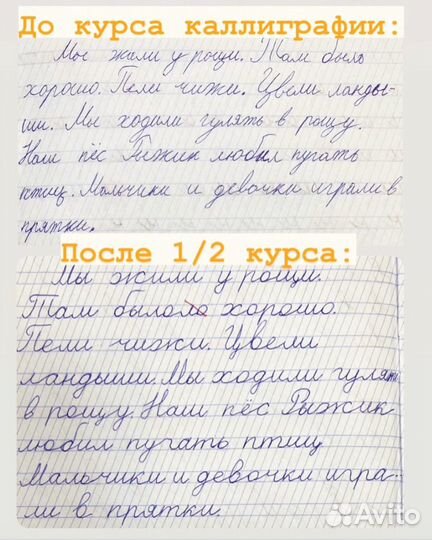 До курса каллиграфии:
Мы жили у рощи. Там было
хорошо. Пели чижи. Цвели ланды-
ши. Мы ходили гулять в рощу.
Наш пёс Рыжик любил пугать
птиц. Мальчики и девочки играли в
прятки.
После 1/2 курса:
Мы жили у рощи.
Там былоло хорошо.
Пели чижи. Цвели
ландыши. Мы ходили гулять
в рощу. Наш пёс Рыжик
любил пугать птиц
Мальчики и девочки игра-
ли в прятки.
Avito